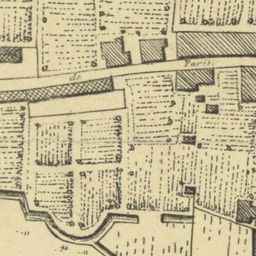 de Paris